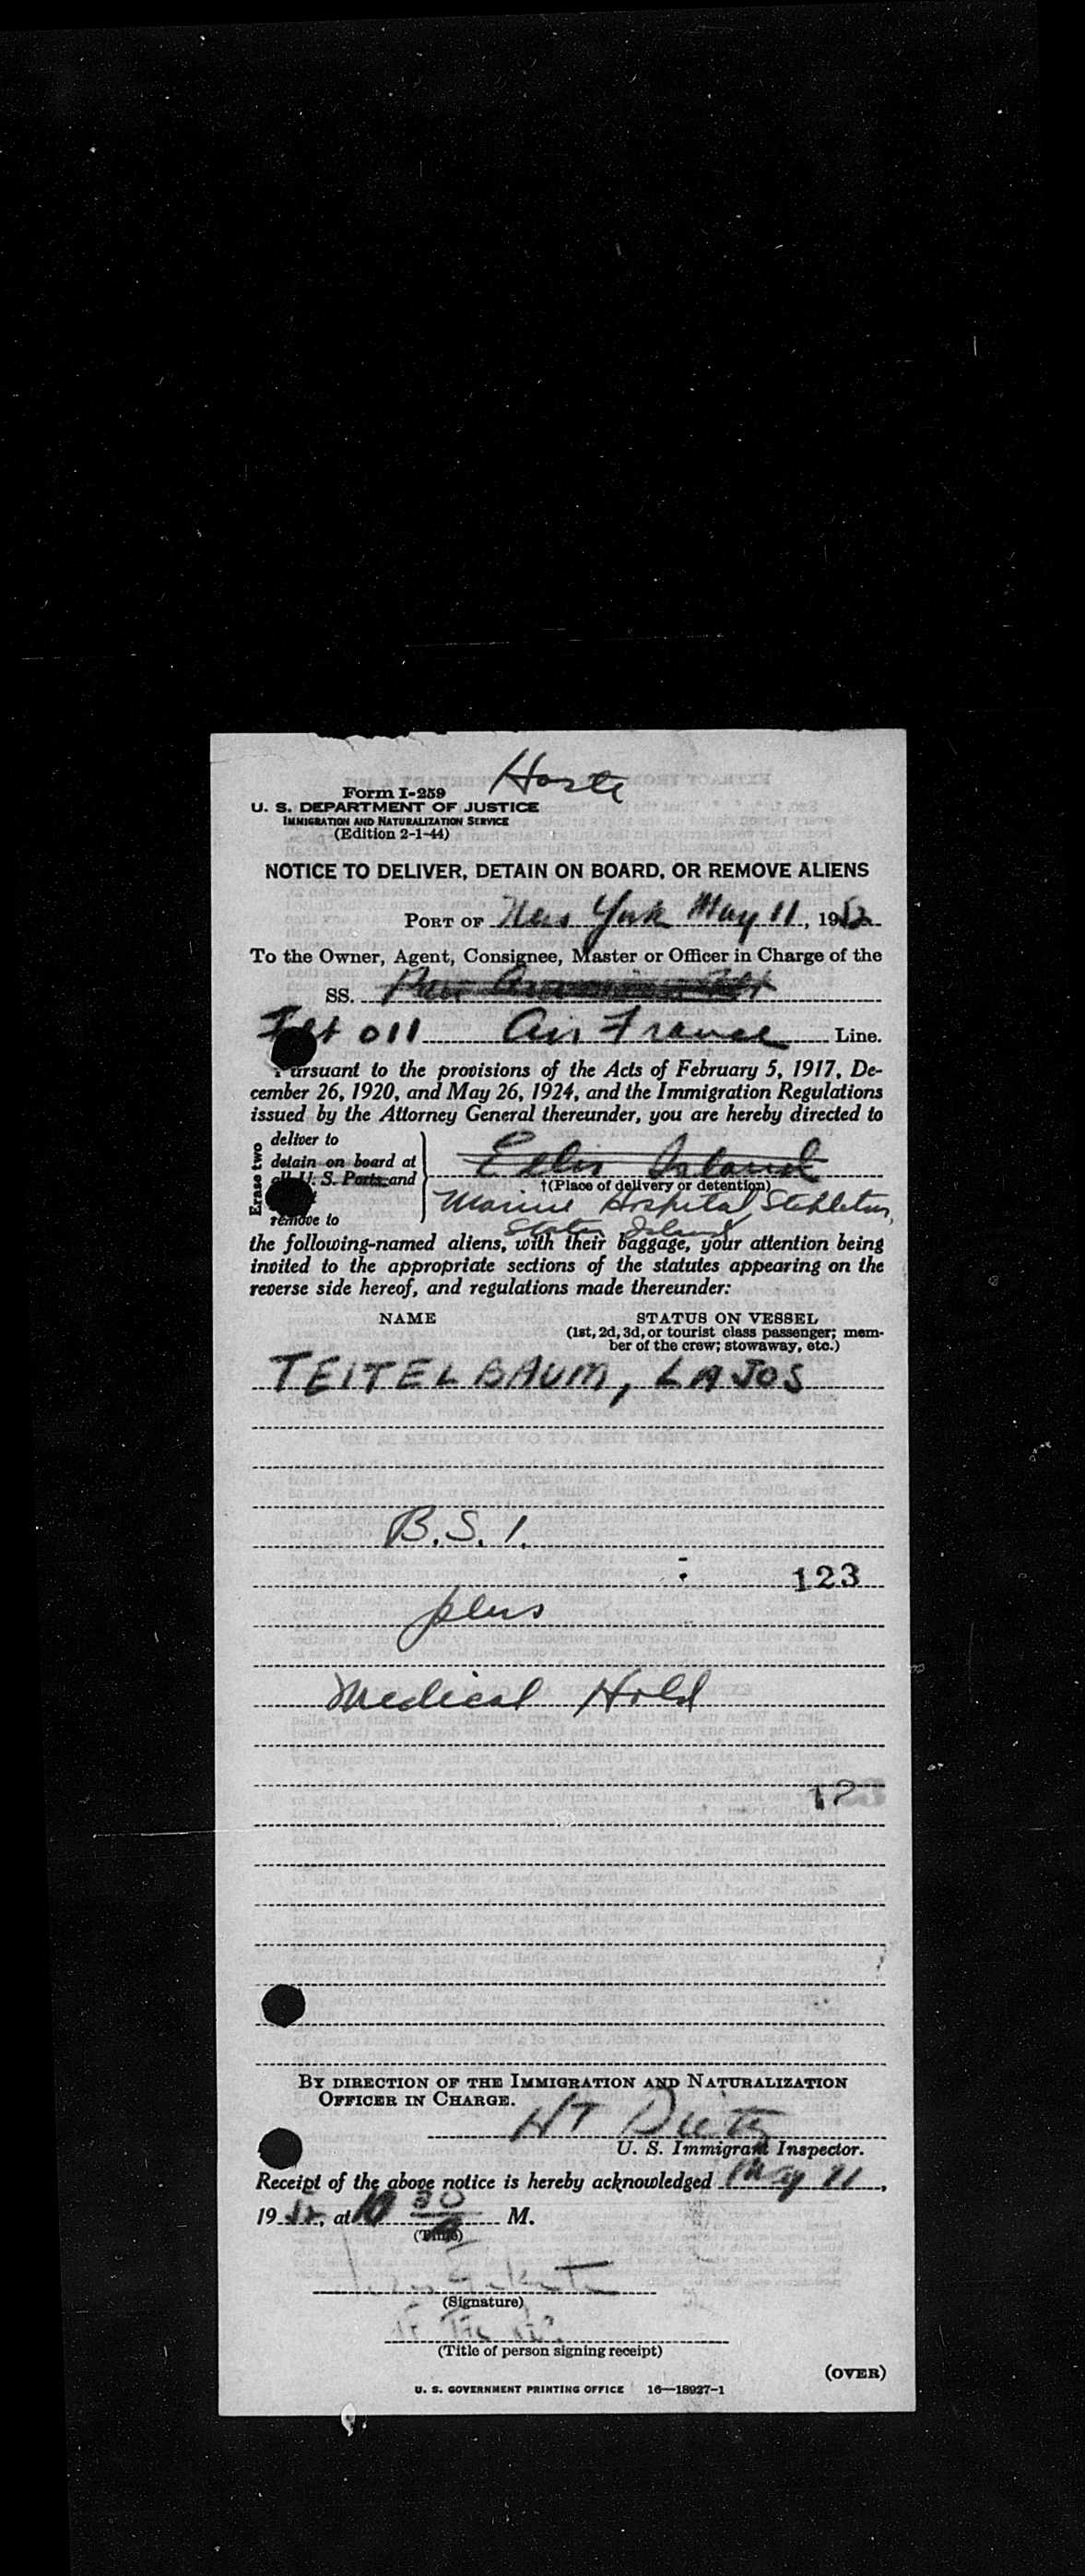 Form I-259
U. S. DEPARTMENT OF JUSTICE
IMMIGRATION AND NATURALIZATION SERVICE
(Edition 2-1-44)
NOTICE TO DELIVER, DETAIN ON BOARD, OR REMOVE ALIENS
PORT OF New York May 11, 1952
To the Owner, Agent, Consignee, Master or Officer in Charge of the
SS.
011 Air France Line.
Pursuant to the provisions of the Acts of February 5, 1917, De-
cember 26, 1920, and May 26, 1924, and the Immigration Regulations
issued by the Attorney General thereunder, you are hereby directed to
Erase two
deliver to
detain on board at
all U. S. Ports and
remove to
Ellis Island
†(Place of delivery or detention)
Marine Hospital Stapleton,
Staten Island
the following-named aliens, with their baggage, your attention being
invited to the appropriate sections of the statutes appearing on the
reverse side hereof, and regulations made thereunder:
NAME STATUS ON VESSEL
(1st, 2d, 3d, or tourist class passenger; mem-
ber of the crew; stowaway, etc.)
TEITELBAUM, LAJOS
B.S.I.
123
plus
Medical Hold
BY DIRECTION OF THE IMMIGRATION AND NATURALIZATION
OFFICER IN CHARGE.
HT Dietz
U. S. Immigrant Inspector.
Receipt of the above notice is hereby acknowledged May 11,
1952, at 10 30 M.
(Time)
(Signature)
(Title of person signing receipt)
(OVER)
U. S. GOVERNMENT PRINTING OFFICE 16—18927-1